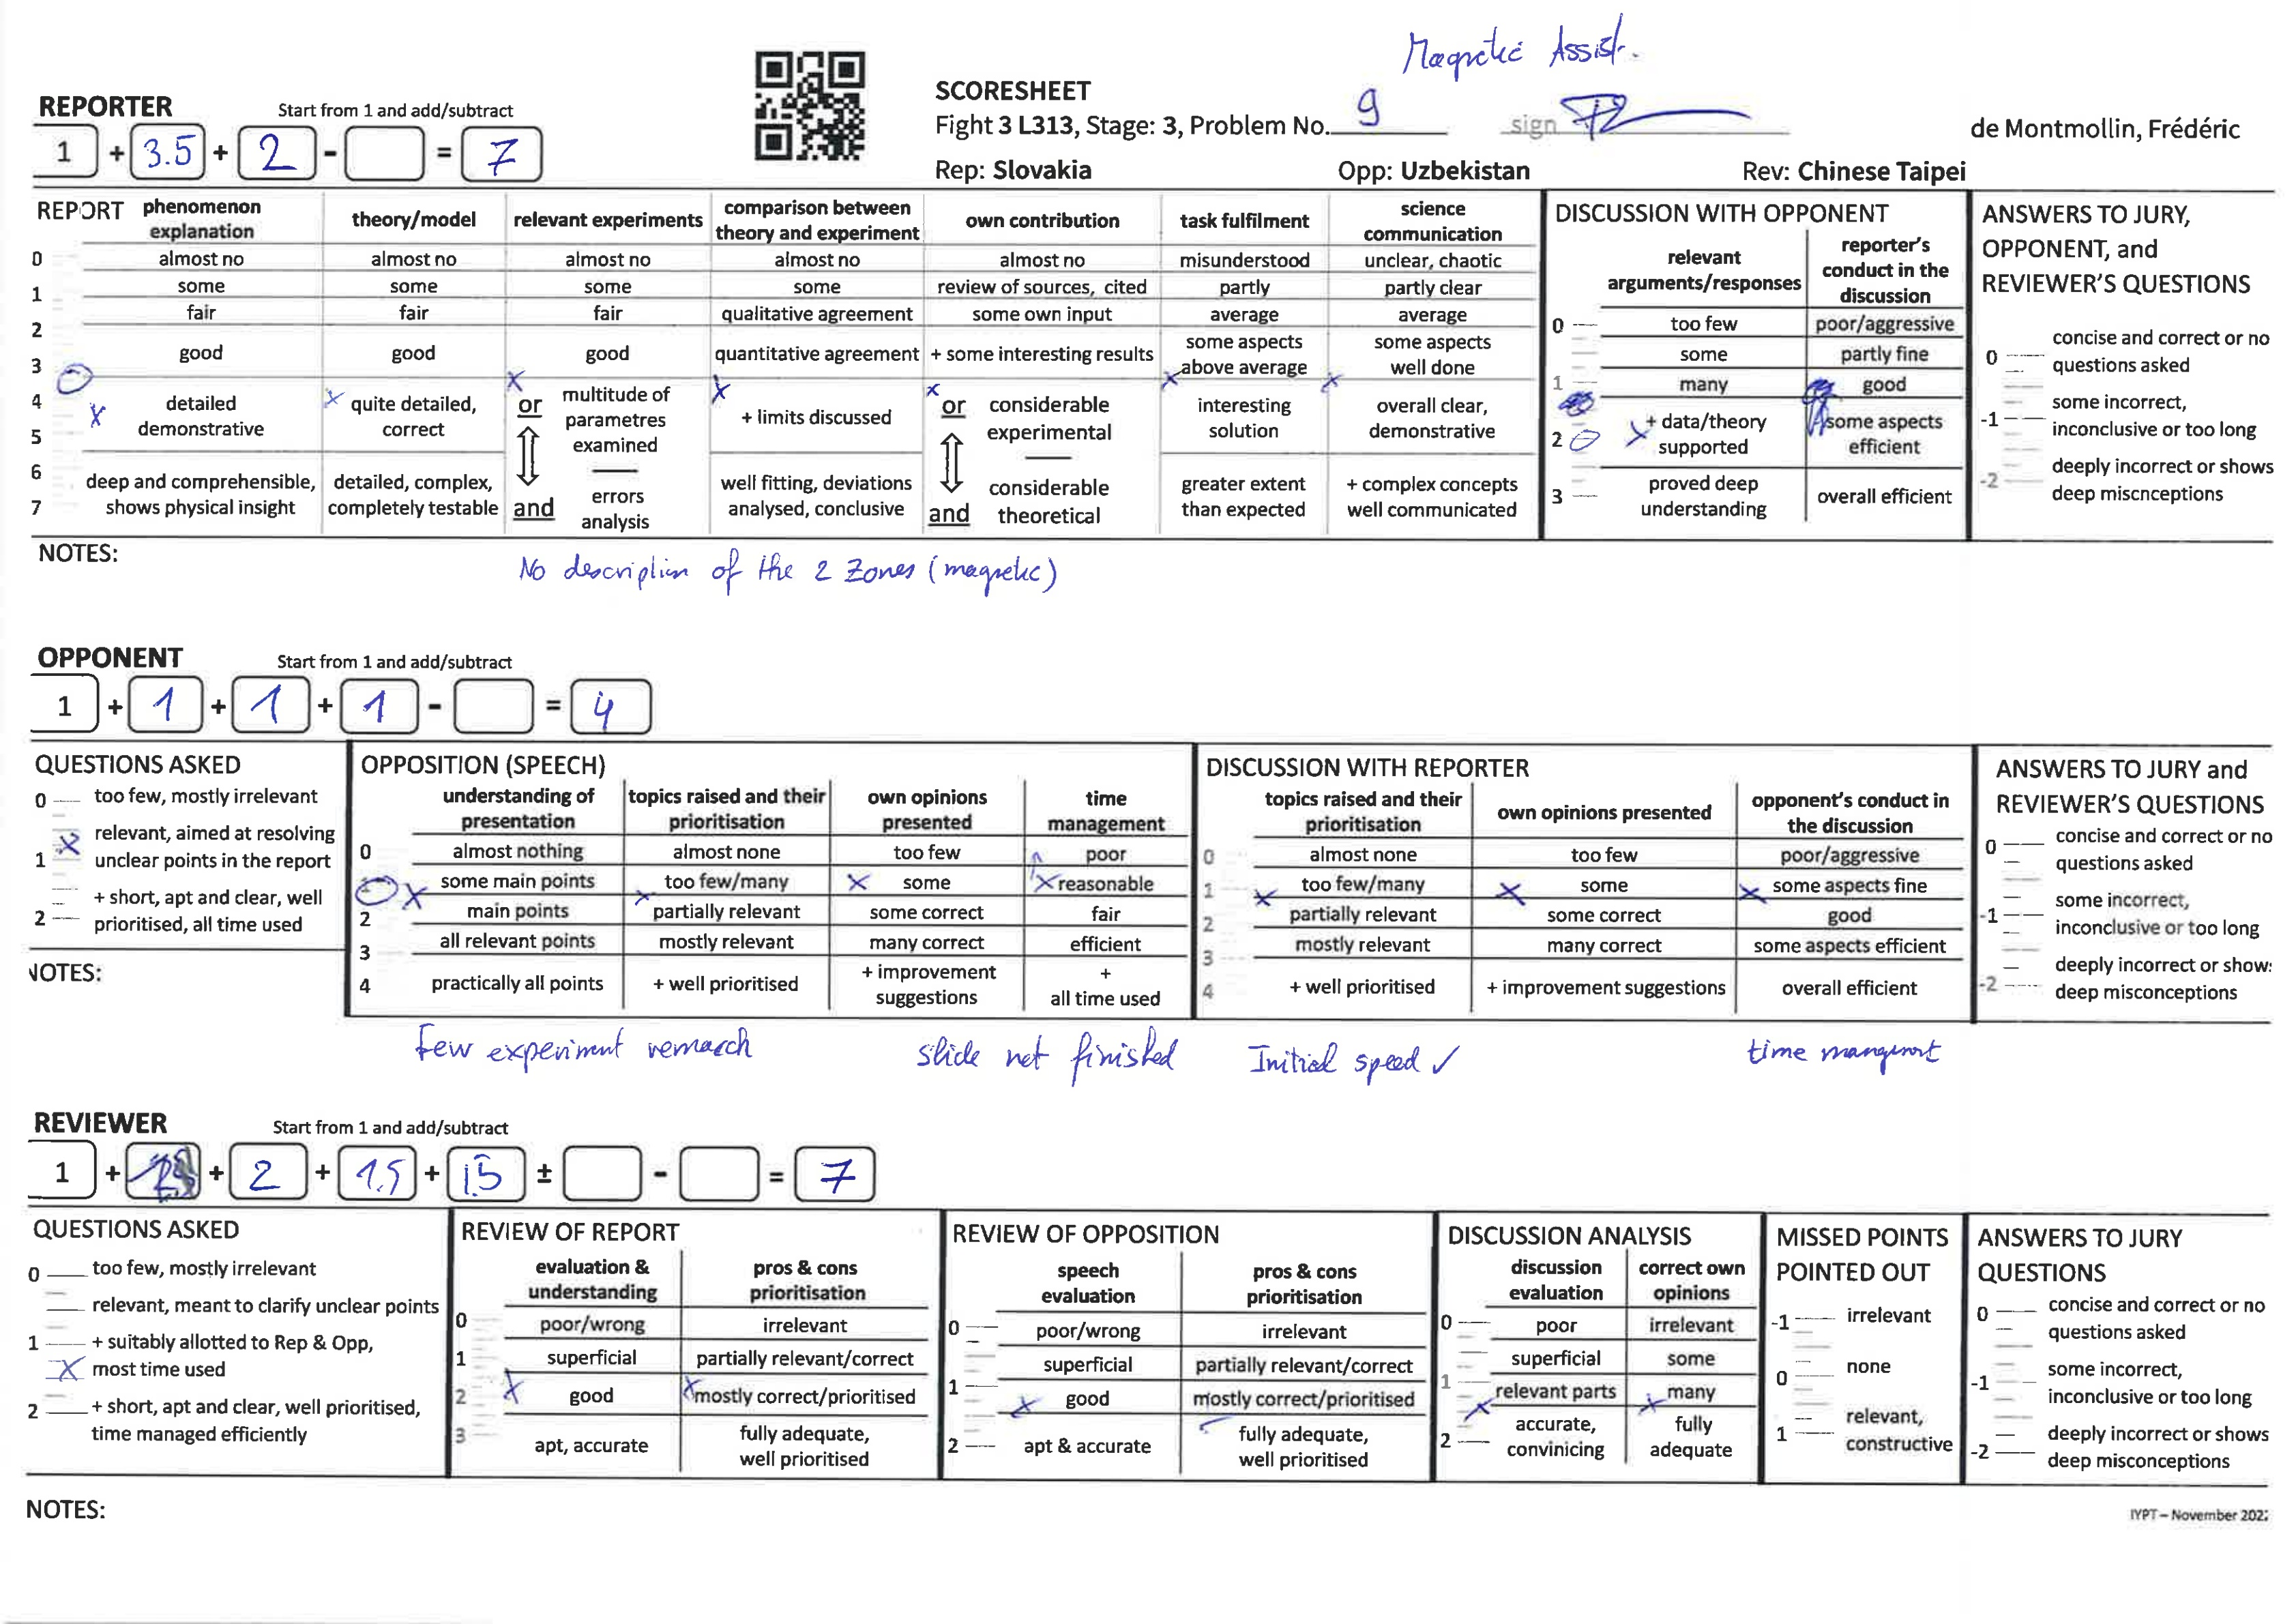 Magnetic Assist.
SCORESHEET
Fight 3 L313, Stage: 3, Problem No. 9
sign
de Montmollin, Frédéric
Rep: Slovakia Opp: Uzbekistan Rev: Chinese Taipei
REPORTER Start from 1 and add/subtract
1 + 3.5 + 2 - = 7
REPORT
phenomenon explanation
theory/model
relevant experiments
comparison between theory and experiment
own contribution
task fulfilment
science communication
0 almost no almost no almost no almost no almost no misunderstood unclear, chaotic
1 some some some some review of sources, cited partly partly clear
2 fair fair fair qualitative agreement some own input average average
3 good good good quantitative agreement + some interesting results some aspects above average some aspects well done
4
5
detailed demonstrative
quite detailed, correct
or
multitude of parametres examined
+ limits discussed
or
considerable experimental
interesting solution
overall clear, demonstrative
6
7
deep and comprehensible, shows physical insight
detailed, complex, completely testable
and
errors analysis
well fitting, deviations analysed, conclusive
and
considerable theoretical
greater extent than expected
+ complex concepts well communicated
DISCUSSION WITH OPPONENT
relevant arguments/responses
reporter's conduct in the discussion
0 too few poor/aggressive
some partly fine
1 many good
2 + data/theory supported some aspects efficient
3 proved deep understanding overall efficient
ANSWERS TO JURY,
OPPONENT, and
REVIEWER'S QUESTIONS
0 concise and correct or no questions asked
-1 some incorrect, inconclusive or too long
-2 deeply incorrect or shows deep miscnceptions
NOTES:
No description of the 2 zones (magnetic)
OPPONENT Start from 1 and add/subtract
1 + 1 + 1 + 1 - = 4
QUESTIONS ASKED
0 too few, mostly irrelevant
relevant, aimed at resolving
1 unclear points in the report
+ short, apt and clear, well
2 prioritised, all time used
NOTES:
OPPOSITION (SPEECH)
understanding of presentation
topics raised and their prioritisation
own opinions presented
time management
0 almost nothing almost none too few poor
some main points too few/many some reasonable
2 main points partially relevant some correct fair
3 all relevant points mostly relevant many correct efficient
4 practically all points + well prioritised + improvement suggestions + all time used
DISCUSSION WITH REPORTER
topics raised and their prioritisation
own opinions presented
opponent's conduct in the discussion
0 almost none too few poor/aggressive
1 too few/many some some aspects fine
2 partially relevant some correct good
3 mostly relevant many correct some aspects efficient
4 + well prioritised + improvement suggestions overall efficient
ANSWERS TO JURY and
REVIEWER'S QUESTIONS
0 concise and correct or no questions asked
-1 some incorrect, inconclusive or too long
-2 deeply incorrect or show: deep misconceptions
Few experiment remarch
slide not finished
Initial speed ✓
time mangment
REVIEWER Start from 1 and add/subtract
1 + + 2 + 1.5 + 1.5 ± - = 7
QUESTIONS ASKED
0 too few, mostly irrelevant
relevant, meant to clarify unclear points
1 + suitably allotted to Rep & Opp,
most time used
2 + short, apt and clear, well prioritised,
time managed efficiently
REVIEW OF REPORT
evaluation & understanding
pros & cons prioritisation
0 poor/wrong irrelevant
1 superficial partially relevant/correct
2 good mostly correct/prioritised
3 apt, accurate fully adequate, well prioritised
REVIEW OF OPPOSITION
speech evaluation
pros & cons prioritisation
0 poor/wrong irrelevant
superficial partially relevant/correct
1 good mostly correct/prioritised
2 apt & accurate fully adequate, well prioritised
DISCUSSION ANALYSIS
discussion evaluation
correct own opinions
0 poor irrelevant
superficial some
1 relevant parts many
2 accurate, convinicing fully adequate
MISSED POINTS
POINTED OUT
-1 irrelevant
0 none
1 relevant, constructive
ANSWERS TO JURY
QUESTIONS
0 concise and correct or no questions asked
-1 some incorrect, inconclusive or too long
-2 deeply incorrect or shows deep misconceptions
NOTES:
IYPT – November 202